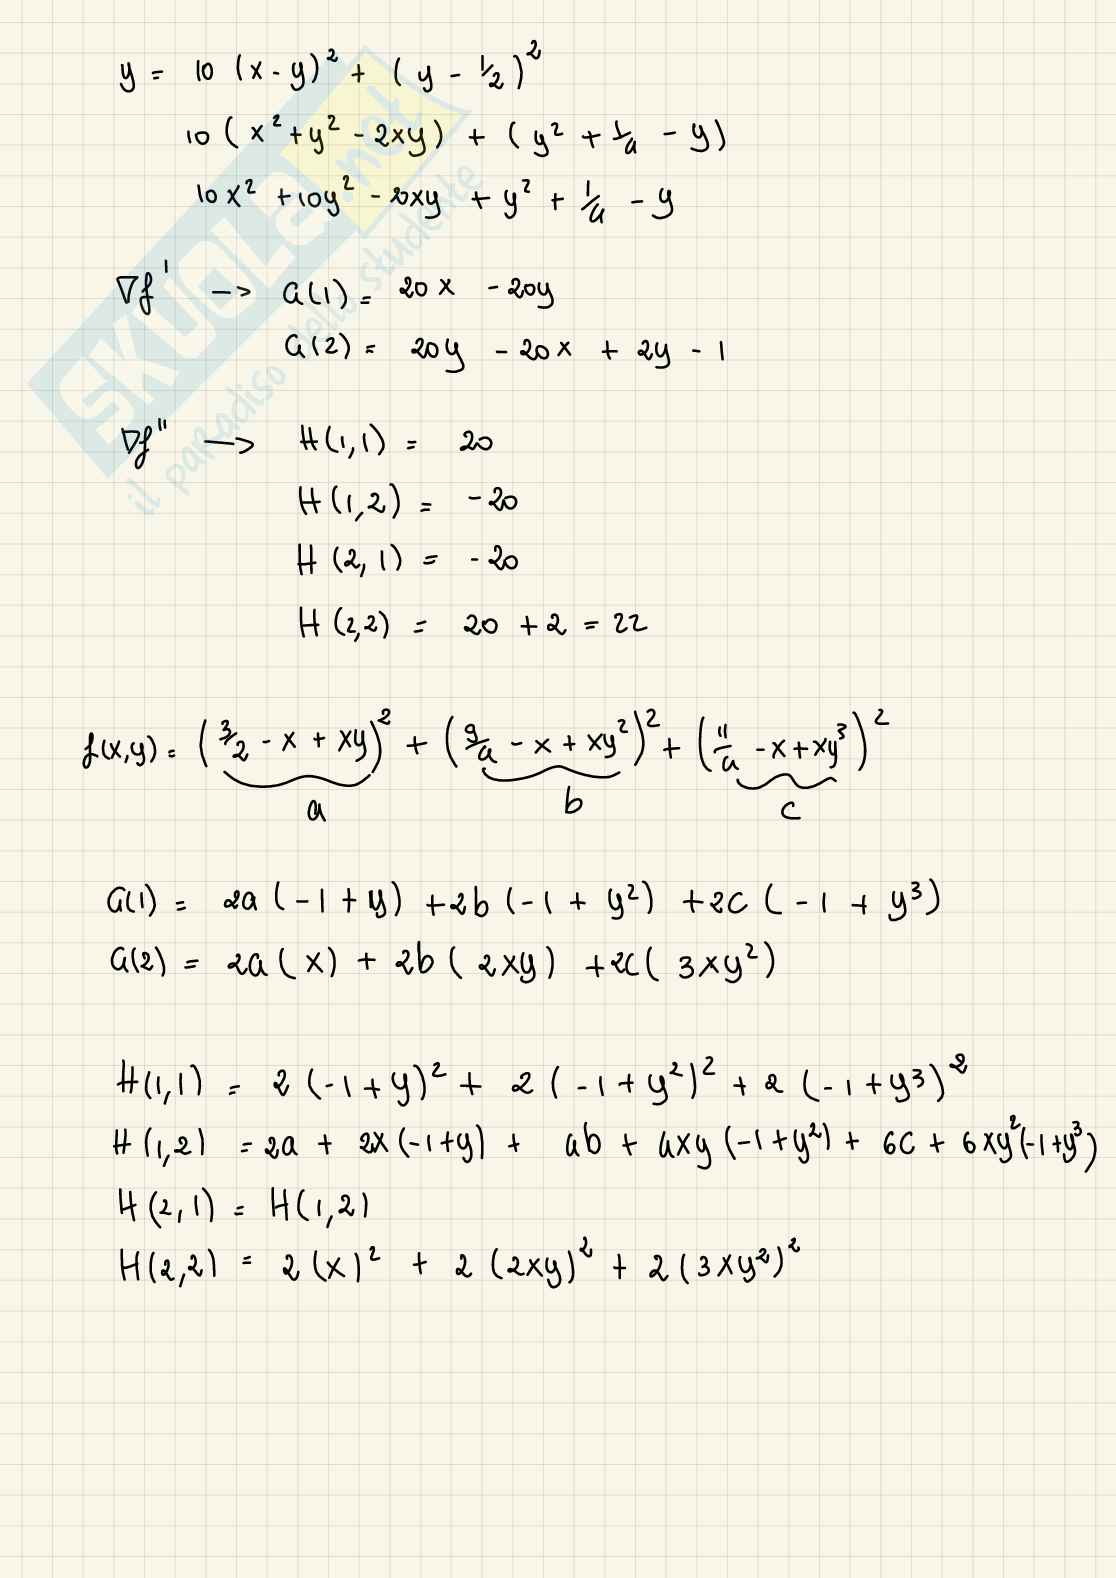 y = 10 (x - y)² + (y - 1/2)²
10 (x² + y² - 2xy) + (y² + 1/4 - y)
10x² + 10y² - 20xy + y² + 1/4 - y
∇f' → G(1) = 20x - 20y
G(2) = 20y - 20x + 2y - 1
∇f'' → H(1,1) = 20
H(1,2) = -20
H(2,1) = -20
H(2,2) = 20 + 2 = 22
f(x,y) = (3/2 - x + xy)² + (9/4 - x + xy²)² + (11/4 - x + xy³)²
a b c
G(1) = 2a (-1 + y) + 2b (-1 + y²) + 2c (-1 + y³)
G(2) = 2a (x) + 2b (2xy) + 2c (3xy²)
H(1,1) = 2 (-1 + y)² + 2 (-1 + y²)² + 2 (-1 + y³)²
H(1,2) = 2a + 2x (-1+y) + 4b + 4xy (-1+y²) + 6c + 6xy² (-1+y³)
H(2,1) = H(1,2)
H(2,2) = 2 (x)² + 2 (2xy)² + 2 (3xy²)²
SKUOLA.net
il paradiso dello studente